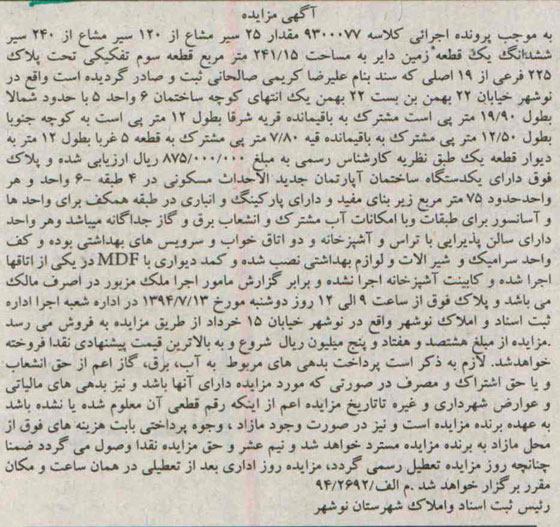 آگهی مزایده
به موجب پرونده اجرائی کلاسه ۹۳۰۰۰۷۷ مقدار ۲۵ سیر مشاع از ۱۲۰ سیر مشاع از ۲۴۰ سیر
ششدانگ یک قطعه زمین دایر به مساحت ۲۴۱/۱۵ متر مربع قطعه سوم تفکیکی تحت پلاک
۲۲۵ فرعی از ۱۹ اصلی که سند بنام علیرضا کریمی صالحانی ثبت و صادر گردیده است واقع در
نوشهر خیابان ۲۲ بهمن بن بست ۲۲ بهمن یک انتهای کوچه ساختمان ۶ واحد ۵ با حدود شمالا
بطول ۱۹/۹۰ متر پی است مشترک به باقیمانده قریه شرقا بطول ۱۲ متر پی است به کوچه جنوبا
بطول ۱۲/۵۰ متر پی مشترک به باقیمانده قیه ۷/۸۰ متر پی مشترک به قطعه ۵ غربا بطول ۱۲ متر به
دیوار قطعه یک طبق نظریه کارشناس رسمی به مبلغ ۸۷۵/۰۰۰/۰۰۰ ریال ارزیابی شده و پلاک
فوق دارای یکدستگاه ساختمان آپارتمان جدید الاحداث مسکونی در ۴ طبقه -۶ واحد و هر
واحدحدود ۷۵ متر مربع زیر بنای مفید و دارای پارکینگ و انباری در طبقه همکف برای واحد ها
و آسانسور برای طبقات وبا امکانات آب مشترک و انشعاب برق و گاز جداگانه میباشد وهر واحد
دارای سالن پذیرایی با تراس و آشپزخانه و دو اتاق خواب و سرویس های بهداشتی بوده و کف
واحد سرامیک و شیر الات و لوازم بهداشتی نصب شده و کمد دیواری با MDF در یکی از اتاقها
اجرا شده و کابینت آشپزخانه اجرا نشده و برابر گزارش مامور اجرا ملک مزبور در اصرف مالک
می باشد و پلاک فوق از ساعت ۹ الی ۱۲ روز دوشنبه مورخ ۱۳۹۴/۷/۱۳ در اداره شعبه اجرا اداره
ثبت اسناد و املاک نوشهر واقع در نوشهر خیابان ۱۵ خرداد از طریق مزایده به فروش می رسد
.مزایده از مبلغ هشتصد و هفتاد و پنج میلیون ریال شروع و به بالاترین قیمت پیشنهادی نقدا فروخته
خواهدشد. لازم به ذکر است پرداخت بدهی های مربوط به آب، برق، گاز اعم از حق انشعاب
و یا حق اشتراک و مصرف در صورتی که مورد مزایده دارای آنها باشد و نیز بدهی های مالیاتی
و عوارض شهرداری و غیره تاتاریخ مزایده اعم از اینکه رقم قطعی آن معلوم شده یا نشده باشد
به عهده برنده مزایده است و نیز در صورت وجود مازاد ، وجوه پرداختی بابت هزینه های فوق از
محل مازاد به برنده مزایده مسترد خواهد شد و نیم عشر و حق مزایده نقدا وصول می گردد ضمنا
چنانچه روز مزایده تعطیل رسمی گردد، مزایده روز اداری بعد از تعطیلی در همان ساعت و مکان
مقرر برگزار خواهد شد .م الف/۹۴/۲۶۹۲
رئیس ثبت اسناد واملاک شهرستان نوشهر